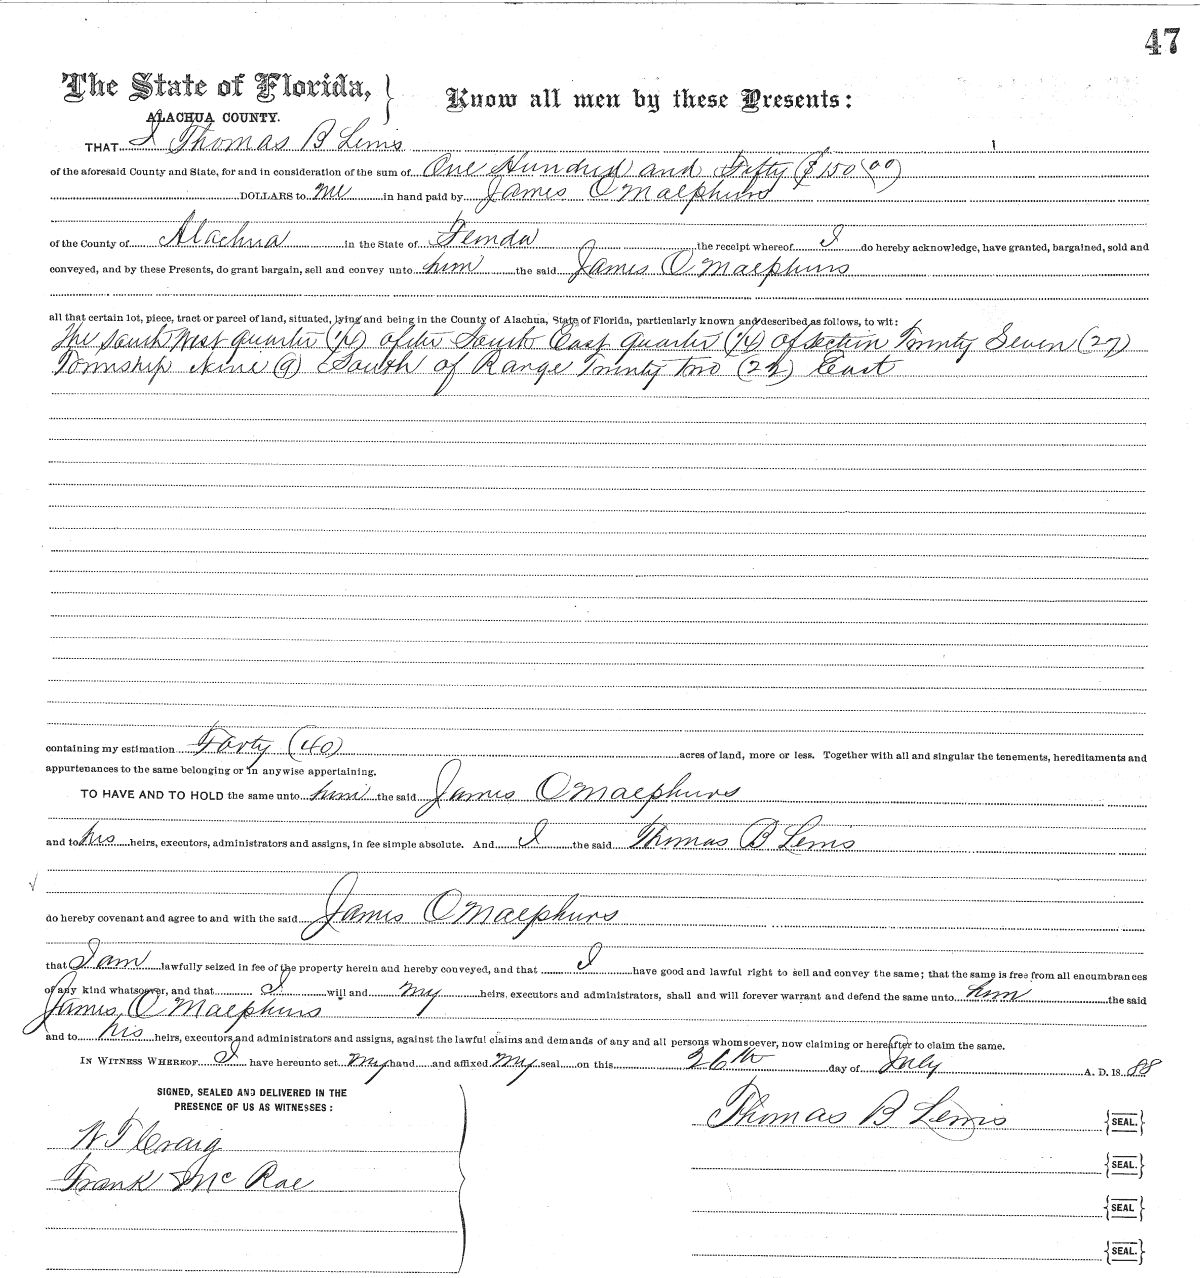 47
The State of Florida,
ALACHUA COUNTY.
Know all men by these Presents:
THAT I Thomas B Lewis
of the aforesaid County and State, for and in consideration of the sum of One Hundred and Fifty ($150 00)
DOLLARS to me in hand paid by James O Macphurs
of the County of Alachua in the State of Florida the receipt whereof I do hereby acknowledge, have granted, bargained, sold and
conveyed, and by these Presents, do grant bargain, sell and convey unto him the said James O Macphurs
all that certain lot, piece, tract or parcel of land, situated, lying and being in the County of Alachua, State of Florida, particularly known and described as follows, to wit:
The South West quarter (1/4) of the South East quarter (1/4) of Section Twenty Seven (27)
Township Nine (9) South of Range Twenty two (22) East
containing my estimation Forty (40) acres of land, more or less. Together with all and singular the tenements, hereditaments and
appurtenances to the same belonging or in anywise appertaining.
TO HAVE AND TO HOLD the same unto him the said James O Macphurs
and to his heirs, executors, administrators and assigns, in fee simple absolute. And I the said Thomas B Lewis
do hereby covenant and agree to and with the said James O Macphurs
that I am lawfully seized in fee of the property herein and hereby conveyed, and that I have good and lawful right to sell and convey the same; that the same is free from all encumbrances
of any kind whatsoever, and that I will and my heirs, executors and administrators, shall and will forever warrant and defend the same unto him the said
James O Macphurs
and to his heirs, executors and administrators and assigns, against the lawful claims and demands of any and all persons whomsoever, now claiming or hereafter to claim the same.
IN WITNESS WHEREOF I have hereunto set my hand and affixed my seal on this 26th day of July A. D. 18 88
SIGNED, SEALED AND DELIVERED IN THE
PRESENCE OF US AS WITNESSES:
Thomas B Lewis {SEAL.}
W T Craig
{SEAL.}
Frank McRae
{SEAL}
{SEAL.}